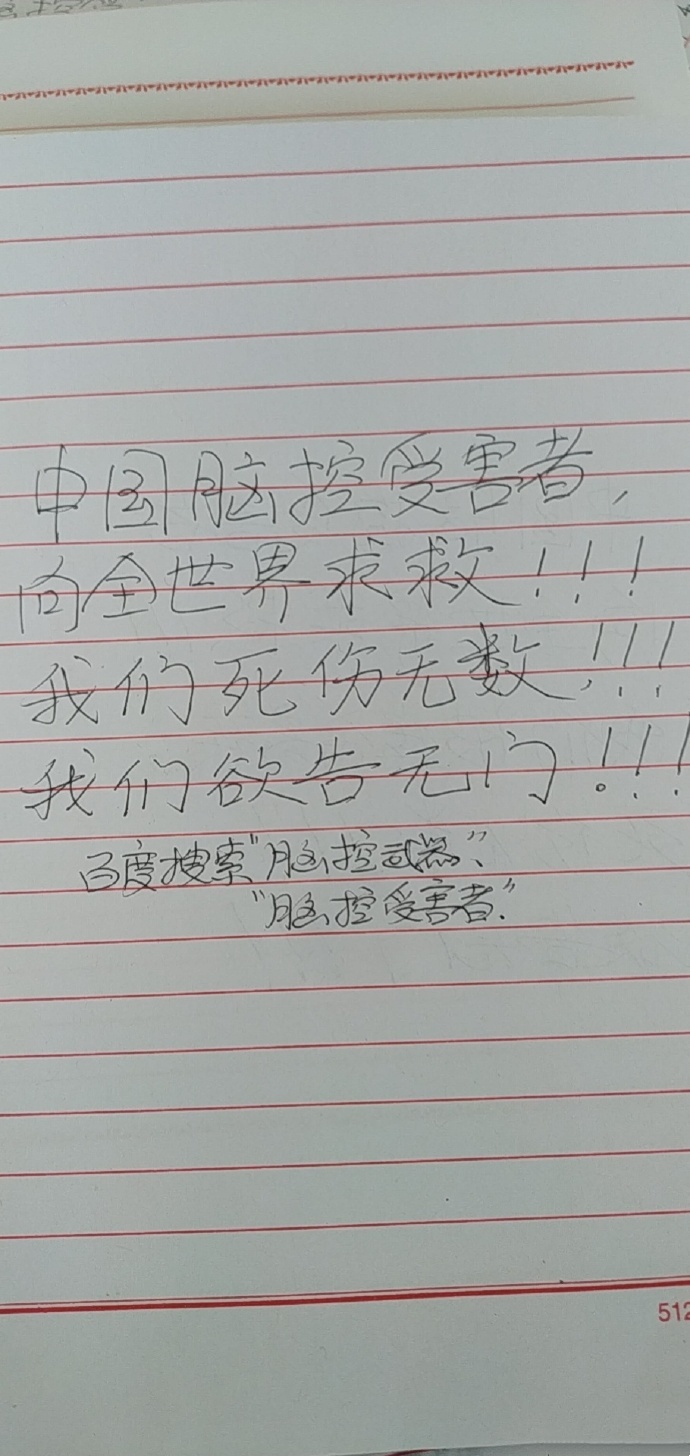 中国脑控受害者，
向全世界求救！！！
我们死伤无数！！！
我们欲告无门！！！
百度搜索“脑控武器”、
“脑控受害者”.
512